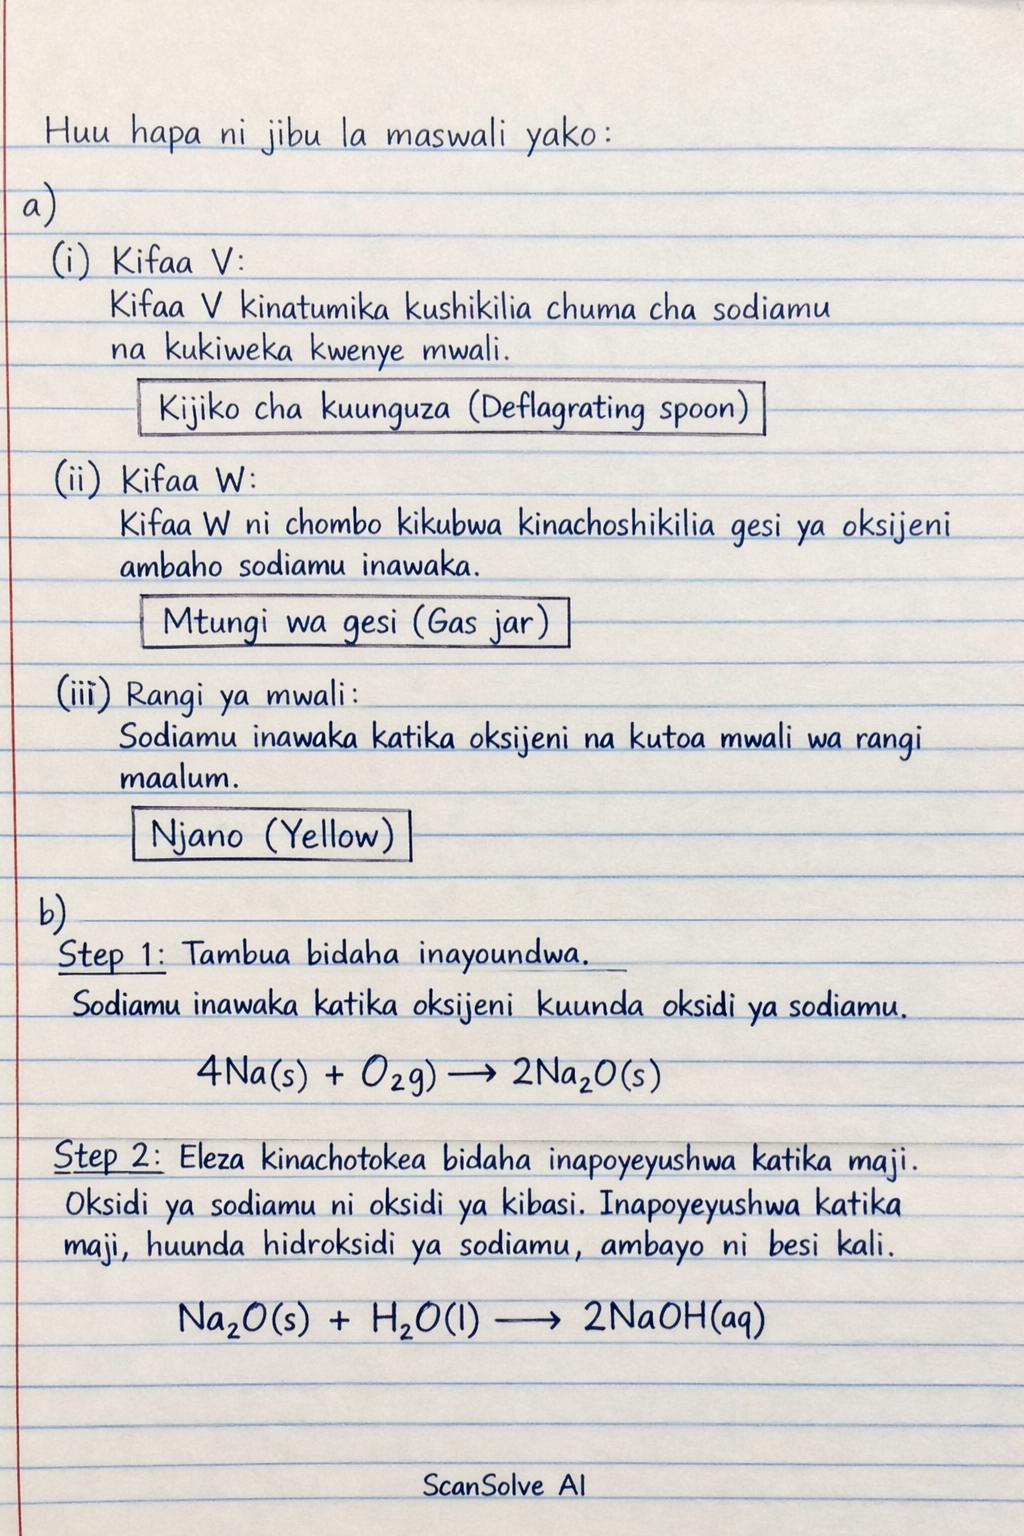 Huu hapa ni jibu la maswali yako:
a)
(i) Kifaa V:
Kifaa V kinatumika kushikilia chuma cha sodiamu
na kukiweka kwenye mwali.
Kijiko cha kuunguza (Deflagrating spoon)
(ii) Kifaa W:
Kifaa W ni chombo kikubwa kinachoshikilia gesi ya oksijeni
ambaho sodiamu inawaka.
Mtungi wa gesi (Gas jar)
(iii) Rangi ya mwali:
Sodiamu inawaka katika oksijeni na kutoa mwali wa rangi
maalum.
Njano (Yellow)
b)
Step 1: Tambua bidaha inayoundwa.
Sodiamu inawaka katika oksijeni kuunda oksidi ya sodiamu.
4Na(s) + O₂g) → 2Na₂O(s)
Step 2: Eleza kinachotokea bidaha inapoyeyushwa katika maji.
Oksidi ya sodiamu ni oksidi ya kibasi. Inapoyeyushwa katika
maji, huunda hidroksidi ya sodiamu, ambayo ni besi kali.
Na₂O(s) + H₂O(l) → 2NaOH(aq)
ScanSolve AI